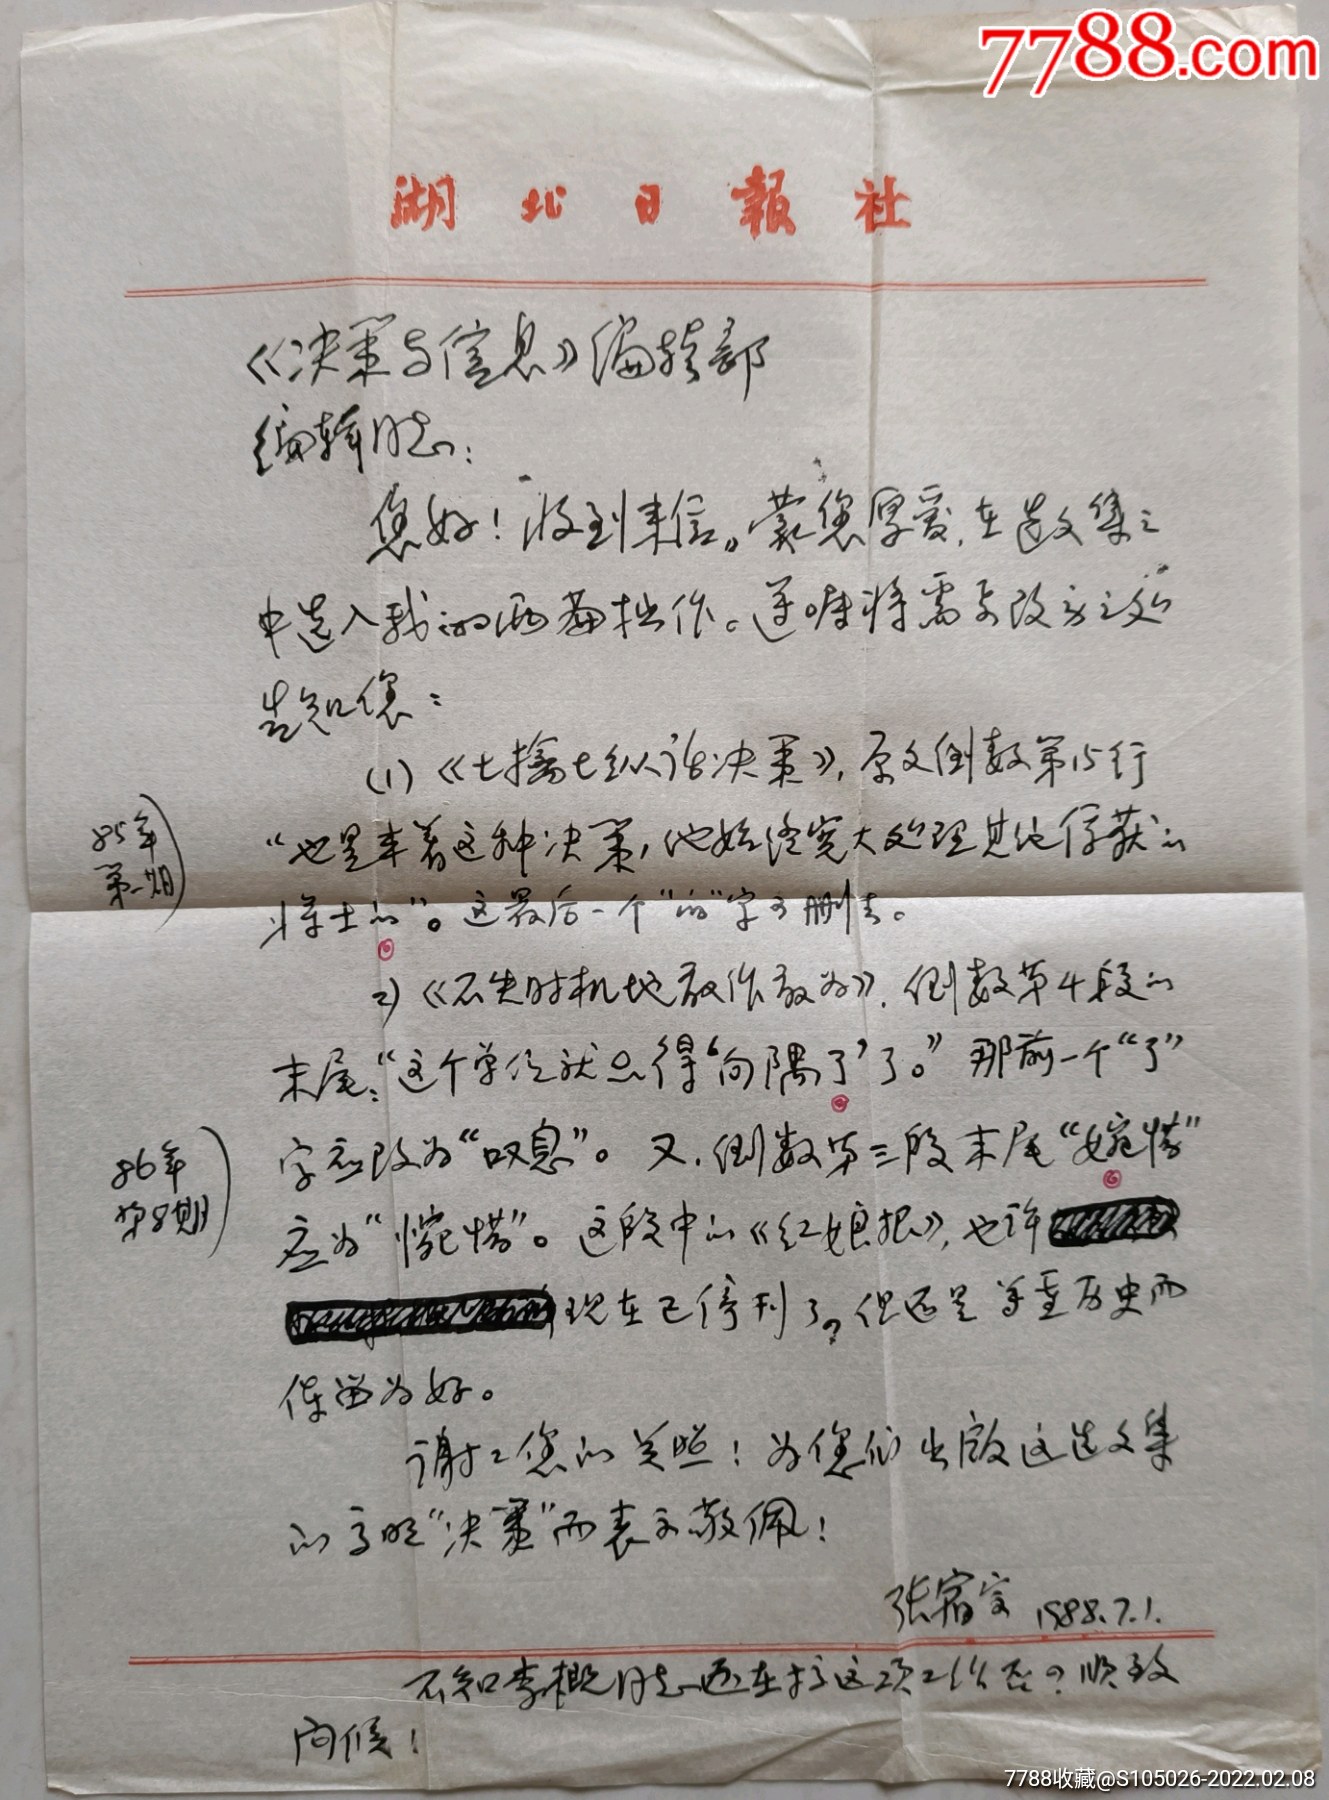 7788.com
湖北日報社
《决策与信息》编辑部
编辑同志:
您好!收到来信。蒙您厚爱,在选文集之
中选入我的两篇拙作。遵嘱将需要改动之处
告知您:
(1)《七擒七纵话决策》,原文倒数第15行
85年
第一期
“也是本着这种决策,他始终宽大处理其他俘获的
将士的”。这最后一个“的”字可删去。
2)《不失时机地敢作敢为》,倒数第4段的
末尾:“这个单位就只得‘向隅了’了。”那前一个“了”
字应改为“叹息”。又,倒数第三段末尾“婉惜”
86年
第8期
应为“惋惜”。这段中的《红娘报》,也许
现在已停刊了,但还是尊重历史而
保留为好。
谢谢您的关照!为您们出版这选文集
的高明“决策”而表示敬佩!
张宿宗 1988.7.1.
不知李概同志还在搞这项工作否?顺致
问候!
7788收藏@S105026-2022.02.08